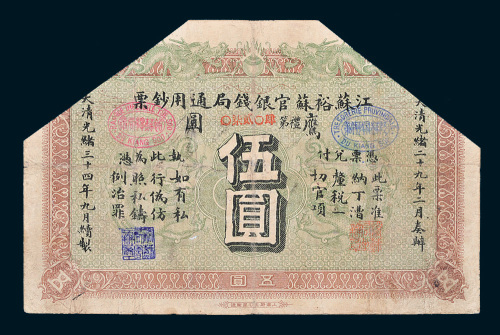 江蘇裕蘇官銀錢局通用鈔票
鷹圓
大清光緒二十九年二月奏辦
憑此票准
票納丁漕
兌釐稅一
付切官項
伍圓
執如有私
此行偽仿
為照私鑄
憑例治罪
大清光緒三十四年九月續製
五圓